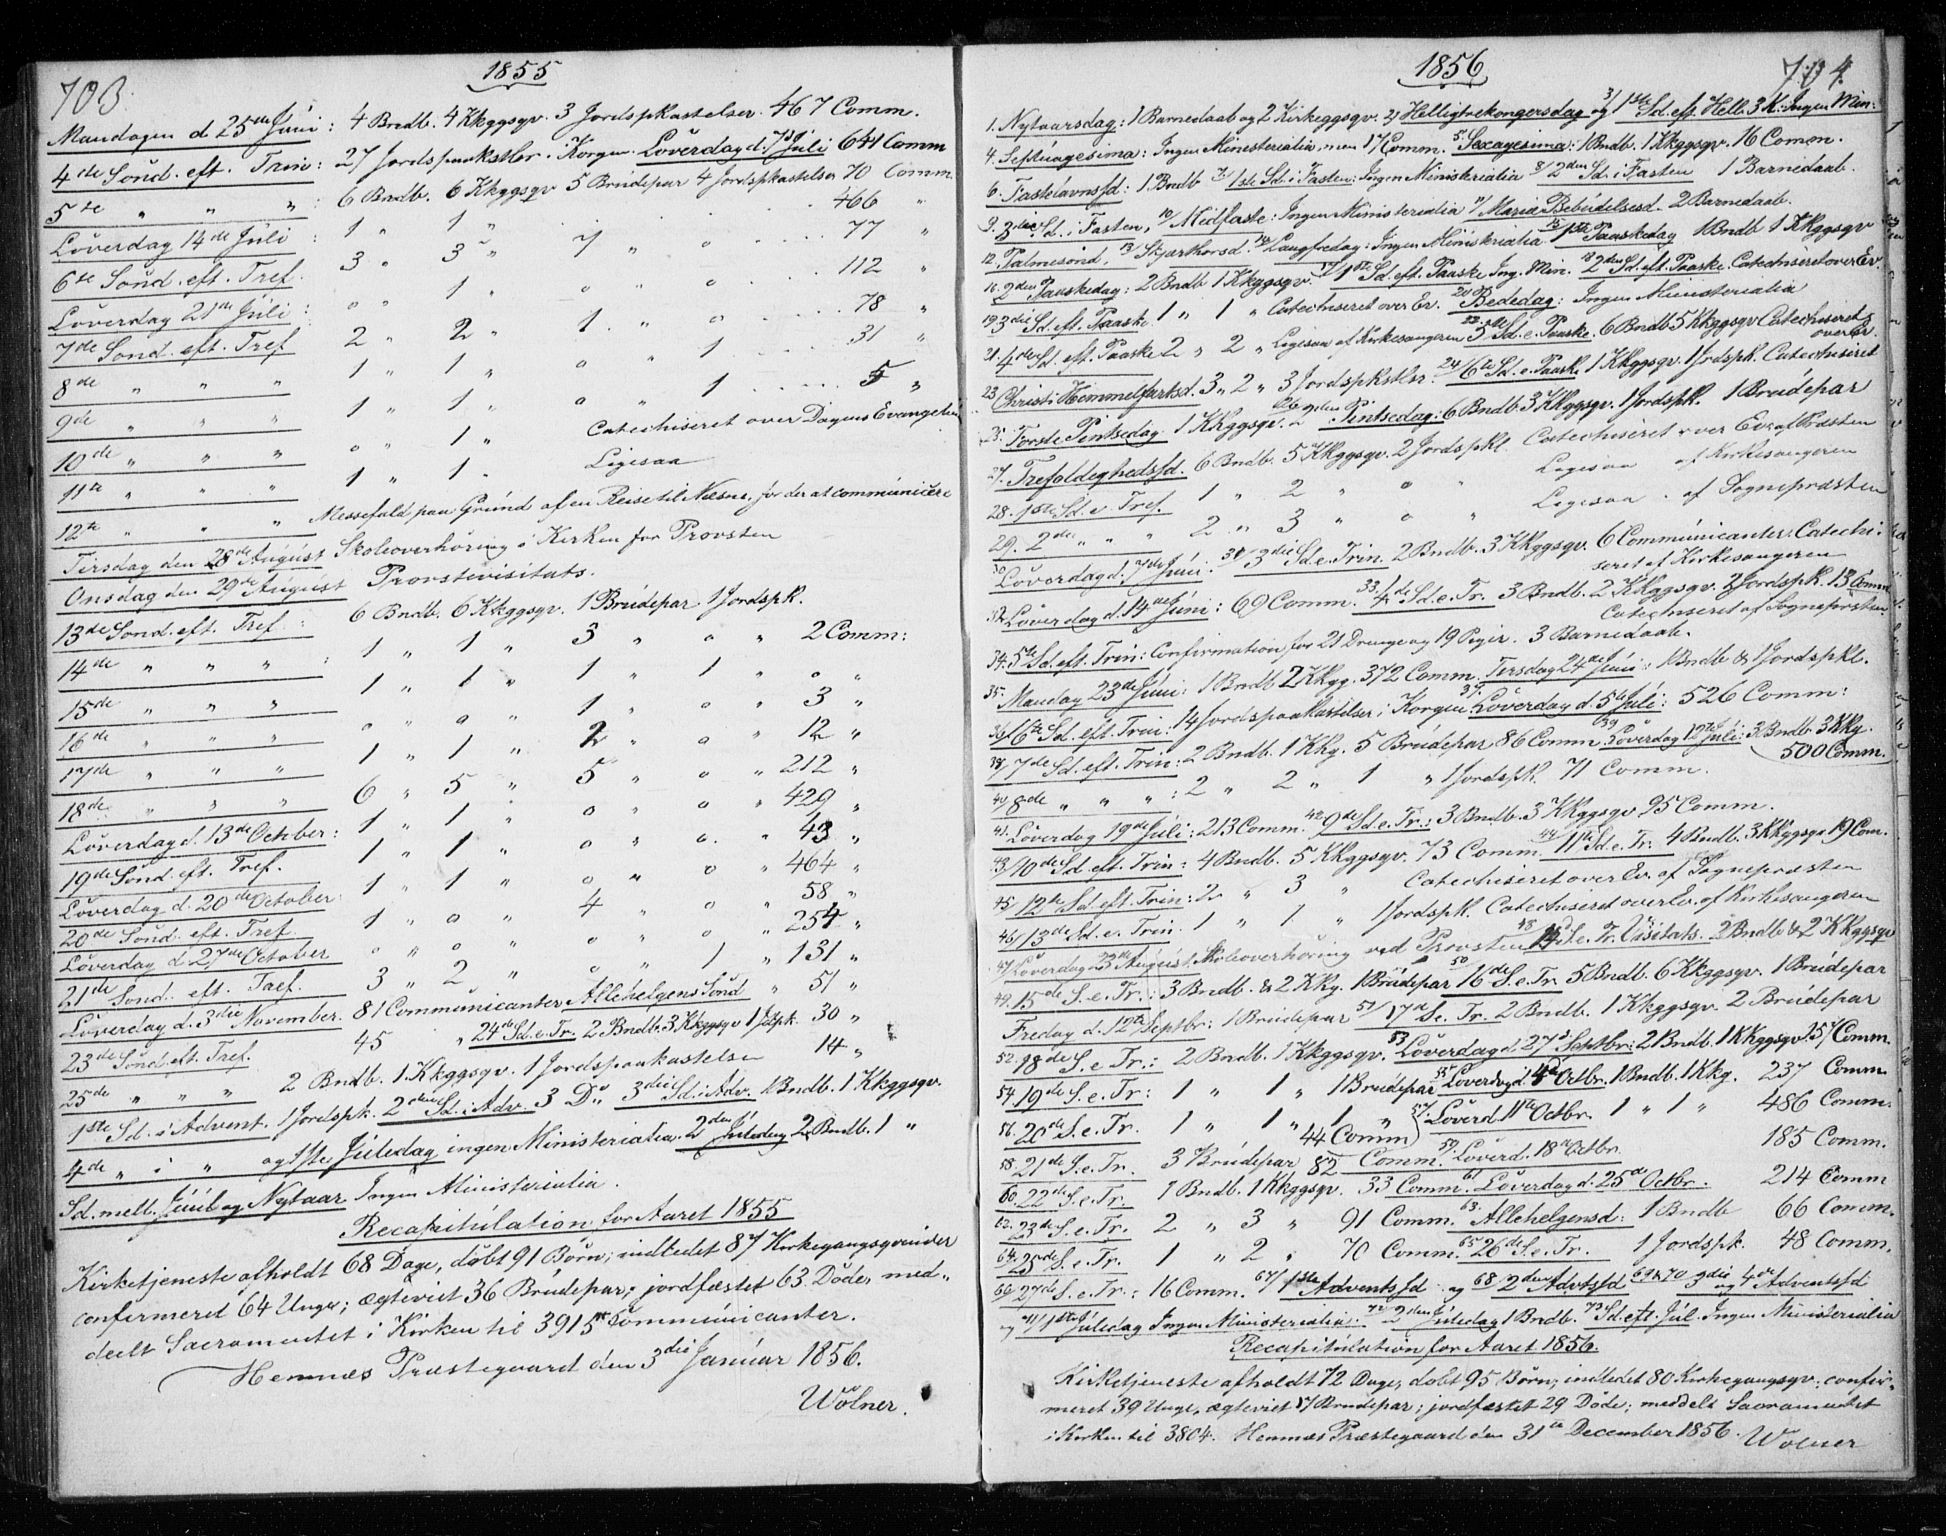 703.
1855
Mandagen d 25de Juni: 4 Bndb. 4 Kkggsqv. 3 Jordspkastelser. 467 Comm.
4de Sönd. eft. Trin: 27 Jordspaakstlr. i Korgen. Löverdag d. 7de Juli 641 Comm
5te " " " : 6 Bndb. 6 Kkggsqv 5 Brudepar 4 Jordspkastelser 70 Comm.
Löverdag 14de Juli : 1 " 1 " . . . . 466 "
6te Sönd. eft. Tref. 3 " 3 " 7 " o . . . 77 "
Löverdag 21de Juli : o " 1 " o " o . . . 112 "
7de Sönd. eft. Tref 2 " 2 " 1 . " o . . . 78 "
8de " " " 1 " 1 " o " 1 . . . 31 "
9de " " " 1 " 1 " o " 1 . . . . 5 "
10de " " " o " 1 " Catechiseret over Dagens Evangelium
11te " " " 1 " 1 . Ligesaa
12te " " " Messefald paa Grund af en Reise til Næsne, for der at communicere
Tirsdag den 28de August Skoleoverhöring i Kirken for Provsten
Onsdag den 29de August Provstevisitats.
13de Sönd. eft. Tref : 6 Bndb. 6 Kkggsqv. 1 Brudepar 1 Jordspk.
14de " " " : 1 " 1 " 3 " o " 2 Comm:
15de " " " 1 " 1 " 1 " 1 " o "
16de " " " o " o " 1 " o " 3 "
17de " " " 1 " 1 " 2 " o " 12 "
18de " " " 6 " 5 " 5 " o " 212 "
Löverdag d. 13de October: 1 " 1 " o " o " 429 "
19de Sönd. eft. Tref. 1 " 1 " o " o. " 43 "
Löverdag d. 20de October. 1 " 1 " o " o " 464 "
20de Sönd. eft. Tref. 1 " o " 4 " o " 58 "
Löverdag d 27de October o " o " o " o " 254 "
21de Sönd. eft. Tref. 3 " 2 " o " 1 " 131 "
Löverdag d. 3die November. 81 Communicanter Allehelgens Sönd " 51 "
23de Sönd. eft. Tref. 45 " 24de Sd. e. Tr. 2 Bndb. 3 Kkggsqv 1 Jdspk. 30 "
25de " " " 2 Bndb. 1 Kkggsqv. 1 Jordspaakastelse 14 "
1ste Sd. i Advent. 1 Jordspk. 2den Sd. i Adv. 3 Do 3die Sd. i Adv. 1 Bndb. 1 Kkggsqv.
4de " i " og 1ste Juledag ingen Ministerialia. 2den Juledag 2 Bndb. 1 "
Sd. mell. Juul og Nytaar Ingen Ministerialia.
Recapitulation for Aaret 1855
Kirketjeneste afholdt 68 Dage, döbt 91 Börn; indledet 87 Kirkegangsqvinder
confirmeret 64 Unge; ægteviet 36 Brudepar; jordfæstet 63 Döde; med-
deelt Sacramentet i Kirken til 3915 Communicanter.
Hemnæs Præstegaard den 3die Januar 1856.
Wolner.
704.
1856
1. Nytaarsdag: 1 Barnedaab og 2 Kirkeggsqv. 2/ Helligtrekongersdag og 3/ 1ste Sd. eft. Hell. 3 K: Ingen Min:
4. Septuagesima: Ingen Ministerialia, men 17 Comm. 5. Sexagesima: 1 Bndb. 1 Kkggsqv. 16 Comm.
6. Fastelavnssd: 1 Bndb 7/ 1ste Sd. i Fasten: Ingen Ministerialia 8/ 2den Sd. i Fasten 1 Barnedaab.
9. 3die Sd. i Fasten, 10/ Midfaste: Ingen Ministerialia 11/ Mariæ Bebudelsesd. 2 Barnedaab.
12. Palmesönd. 13/ Skjærthorsd. 14/ Langfredag: Ingen Ministerialia 15/ 1ste Paaskedag 1 Bndb 1 Kkggsqv
16. 2den Paaskedag: 2 Bndb 1 Kkggsqv. 17/ 1ste Sd. eft. Paaske Ing. Min. 18 2den Sd. eft. Paaske. Catechiseret over Ev.
19 3die Sd. eft. Paaske 1 " 1 " Catechiseret over Ev. 20 Bededag: Ingen Ministerialia
21. 4de Sd. eft. Paaske 2 " 2 " Ligesaa af Kirkesangeren 22. 5te Sd. e. Paaske. 6 Bndb. 5 Kkggsqv Catechiseret over Ev.
23 Christi Himmelfartsd. 3 " 2 " 3 Jordspkstlsr. 24/ 6te Sd. e. Paaske 1 Kkggsqv. 1 Jrdspk. Catechiseret
25. Förste Pintsedag 1 Kkggsqv. 26 2den Pintsedag: 6 Bndb. 3 Kkggsqv. 1 Jordspk. 1 Brudepar
27. Trefoldighedssd. 6 Bndb. 5 Kkggsqv. 2 Jordspkl. Catechiseret over Ev. af Præsten
28. 1ste Sd. e. Tref. 1 " 2 " o " Ligesaa af Kirkesangeren
29. 2den " " " 2 " 3 " o " Ligesaa . af Sognepræsten
30 Löverdag d. 7de Juni. 31/ 3die Sd. e. Trin. 2 Bndb. 3 Kkggsqv. 6 Communicanter. Catechi-
seret af Kirkesangeren
32. Löverdag d. 14de Juni: 69 Comm. 33. 4de Sd. e. Tr. 3 Bndb. 2 Kkggsqv. 2 Jordspk. 13 Comm
Catechiseret af Sognepræsten.
34. 5te Sd. eft. Trin: Confirmation for 21 Drenge og 19 Piger. 3 Barnedaab.
35. Mandag 23de Juni: 1 Bndb 2 Kkgg. 372 Comm. Tirsdag 24de Juni: 1 Bndb & 1 Jordspkl.
36/ 6te Sd. eft. Trin: 14 Jordspaakastelser i Korgen 37. Löverdag d. 5te Juli: 526 Comm:
38/ 7de Sd. eft. Trin: 2 Bndb. 1 Kkg. 5 Brudepar 86 Comm. 39 Löverdag 12te Juli: 3 Bndb. 3 Kkg.
500 Comm.
40/ 8de " " " : 2 " 2 " 1 " 1 Jordspk. 71 Comm.
41. Löverdag 19de Juli: 213 Comm. 42 9de Sd. e. Tr.: 3 Bndb. 3 Kkggsqv 95 Comm.
43/ 10de Sd eft. Trin: 4 Bndb. 5 Kkggsqv. 73 Comm. 44 11te Sd. e. Tr. 4 Bndb. 3 Kkggsqv 19 Com.
45/ 12te Sd. eft. Trin: 2 " 3 " Catechiseret over Ev. af Sognepræsten
46/ 13de Sd. e. Trin. 1 " 1 " 1 Jordspk. Catechiseret over Ev. af Kirkesangeren
47/ Löverdag 23de August. Skoleoverhöring ved Provsten 48 14 S. e. Tr. Visitats. 2 Bndb & 2 Kkggsqv
49. 15de S. e. Tr.: 3 Bndb. & 2 Kkg. 1 Brudepar 50 16de S. e. Tr. 5 Bndb. 6 Kkggsqv. 1 Brudepar
Fredag d. 12te Septbr: 1 Brudepar 51/ 17de S. e. Tr. 2 Bndb. 1 Kkggsqv. 2 Brudepar
52. 18de S. e. Tr.: 2 Bndb. 1 Kkggsqv. 53 Löverdag d 27de Septbr: 2 Bndb. 1 Kkggsqv. 157 Comm.
54. 19de S. e. Tr: 1 " 1 " 1 Brudepar 55 Löverdag d. 4de Octbr. 1 Bndb. 1 Kkg. 237 Comm
56. 20de S. e. Tr. 1 " 1 " 1 " 44 Comm 57. Löverd. 11te Octbr. 1 " 1 " 486 Comm:
58. 21de S. e. Tr. 3 Brudepar 82 Comm. 59 Löverd. 18de Octbr. 185 Comm.
60. 22de S. e. Tr. 1 Bndb. 1 Kkggsqv. 33 Comm. 61 Löverdag d. 25de Octbr. 214 Comm
62. 23de S. e. Tr. 2 " 3 " 91 Comm. 63. Allehelgensd: 1 Bndb 66 Comm.
64. 25de S. e. Tr. 1 " 2 " 70 Comm. 65 26de S. e. Tr. 1 Jordspk. 48 Comm.
66. 27de S. e. Tr.: 16 Comm. 67/ 1ste Advents Sd og 68/ 2den Advtssd 69 & 70 3die og 4de Adventssd
og 71/ 1ste Juledag Ingen Ministerialia. 72 2den Juledag 1 Bndb. 73 Sd. eft. Jul. Ingen Ministerialia
Recapitulation for Aaret 1856.
Kirketjeneste afholdt 72 Dage, döbt 95 Börn; indledet 80 Kirkegangsqv; confir-
meret 39 Unge, ægteviet 17 Brudepar; jordfæstet 29 Döde; meddelt Sacramentet
i Kirken til 3804. Hemnæs Præstegaard den 31te December 1856. Wolner